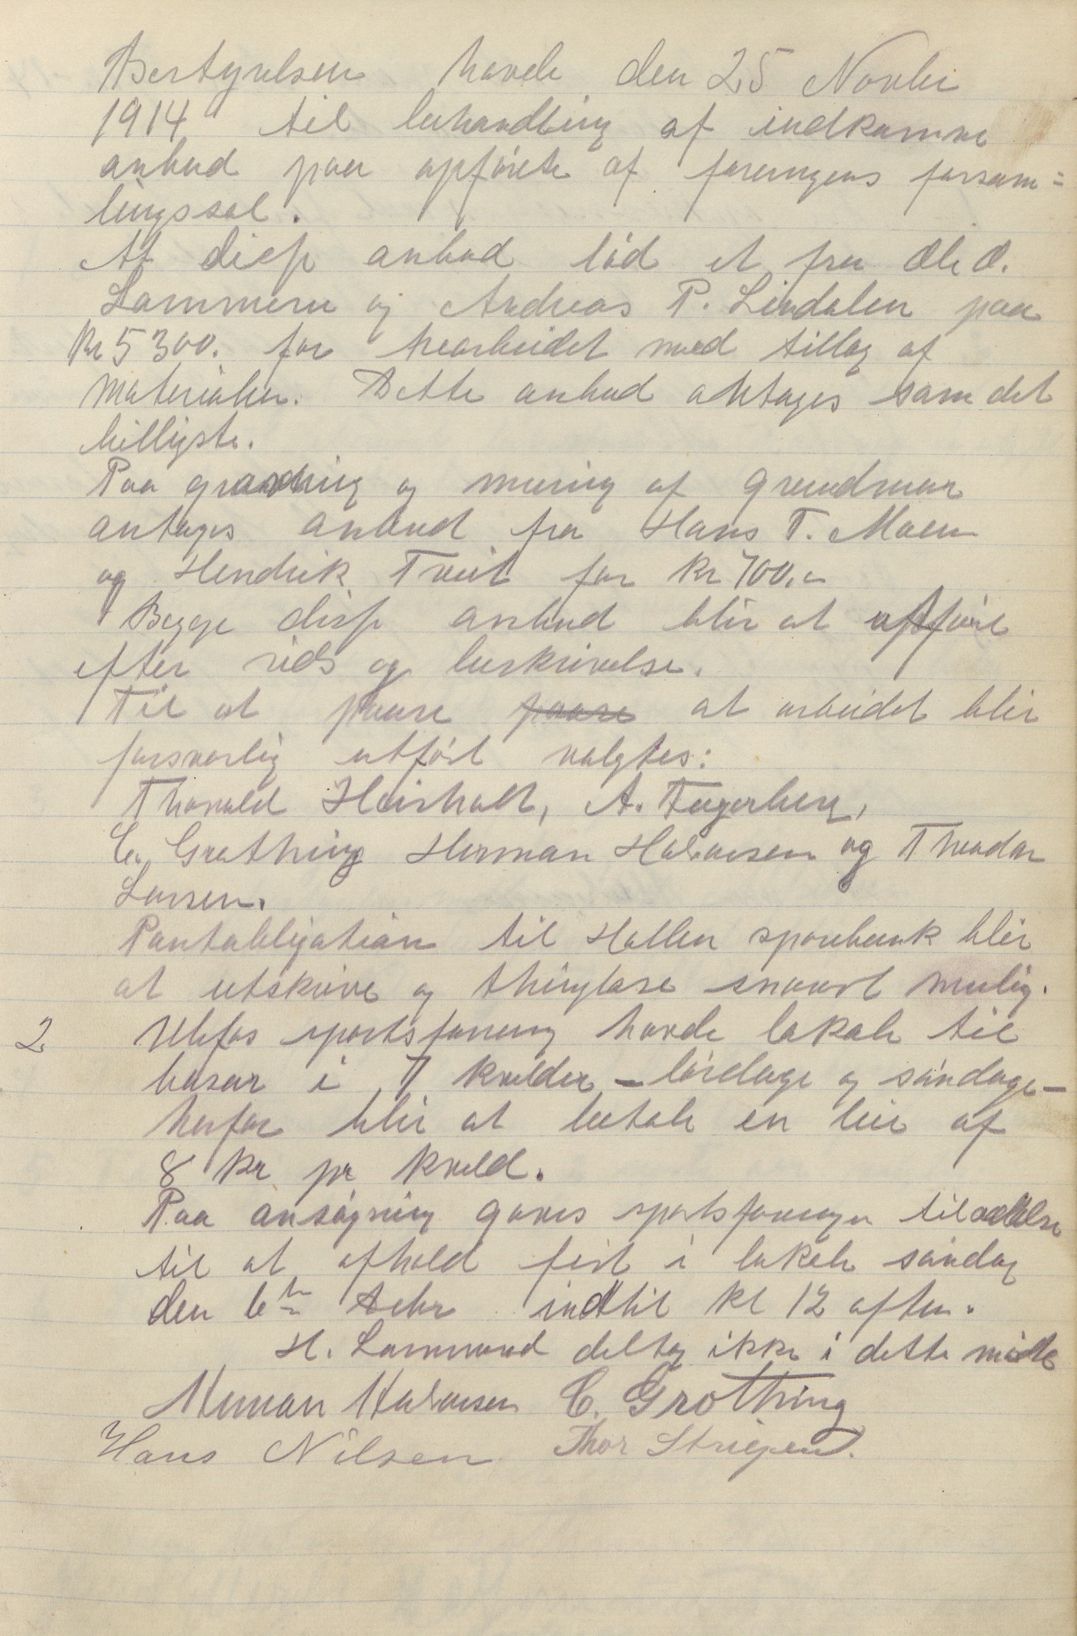 Bestyrelsen havde den 25 Novbr
1914 til behandling af indkomne
anbud paa opførelse af foreningens forsam=
lingssal.
Af disse anbud lød et fra Ole O.
Lammeren og Andreas P. Lindalen paa
Kr 5300. for træarbeidet med tillæg af
Materialier. Dette anbud antages som det
billigste.
Paa gravning og muring af Grundmur
antages anbud fra Hans T. Moen
og Hendrik Tveit for Kr 700.-
Begge disse anbud blir at utføre
efter rids og beskrivelse.
Til at paase paase at arbeidet blir
forsvarlig utført valgtes:
Thorvald Heisholt, A. Fagerberg,
C. Grothing Herman Halvorsen og Theodor
Larsen.
Pantobligation til Hollen sparebank blir
at utskrive og thinglæse snarest mulig.
2 Ulefos sportsforening havde lokale til
basar i 7 kvelder – lørdage og søndage –
herfor blir at betale en leie af
8 kr pr kveld.
Paa ansøgning gaves sportsforeningen tilladelse
til at afholde fest i lokale søndag
den 6te Debr indtil kl 12 aften.
H. Lammund deltog ikke i dette møde
Herman Halvorsen C. Grothing
Hans Nilsen Thor Striegen.